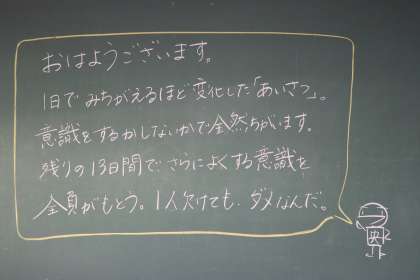 おはようございます。
1日でみちがえるほど変化した「あいさつ」。
意識をするかしないかで全然ちがいます。
残りの13日間でさらによくする意識を
全員がもとう。1人欠けても、ダメなんだ。